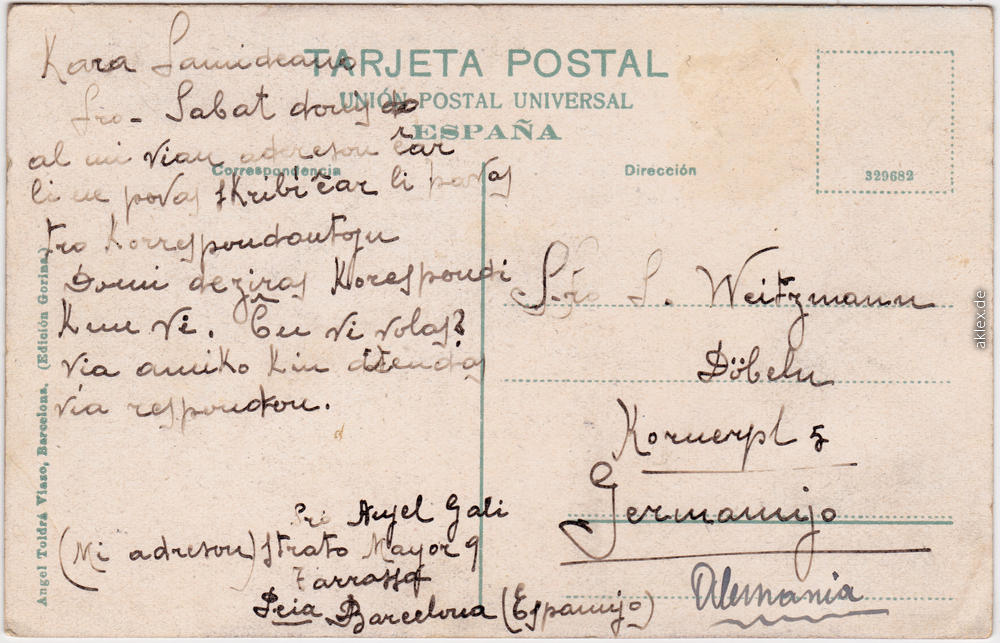 TARJETA POSTAL
UNIÓN POSTAL UNIVERSAL
ESPAÑA
Correspondencia
Kara Samideano
Sro- Sabat donis
al mi vian adreson ĉar
li ne povas skribi ĉar li havas
tro Korrespondantoju
Domi deziras Korespondi
Kun vi. Ĉu vi volas?
via amiko kiu atendas
via respondon.
Sro Angel Gali
(Mi adreson) Strato Mayor 9
Tarrassa
Pcia Barcelona (Espanujo)
Dirección
329682
S-ro S. Weitzmann
Döbeln
Kornerpl 5
Germanujo
Alemania
Angel Toldrá Viazo, Barcelona. (Edición Gorina.)
aklex.de